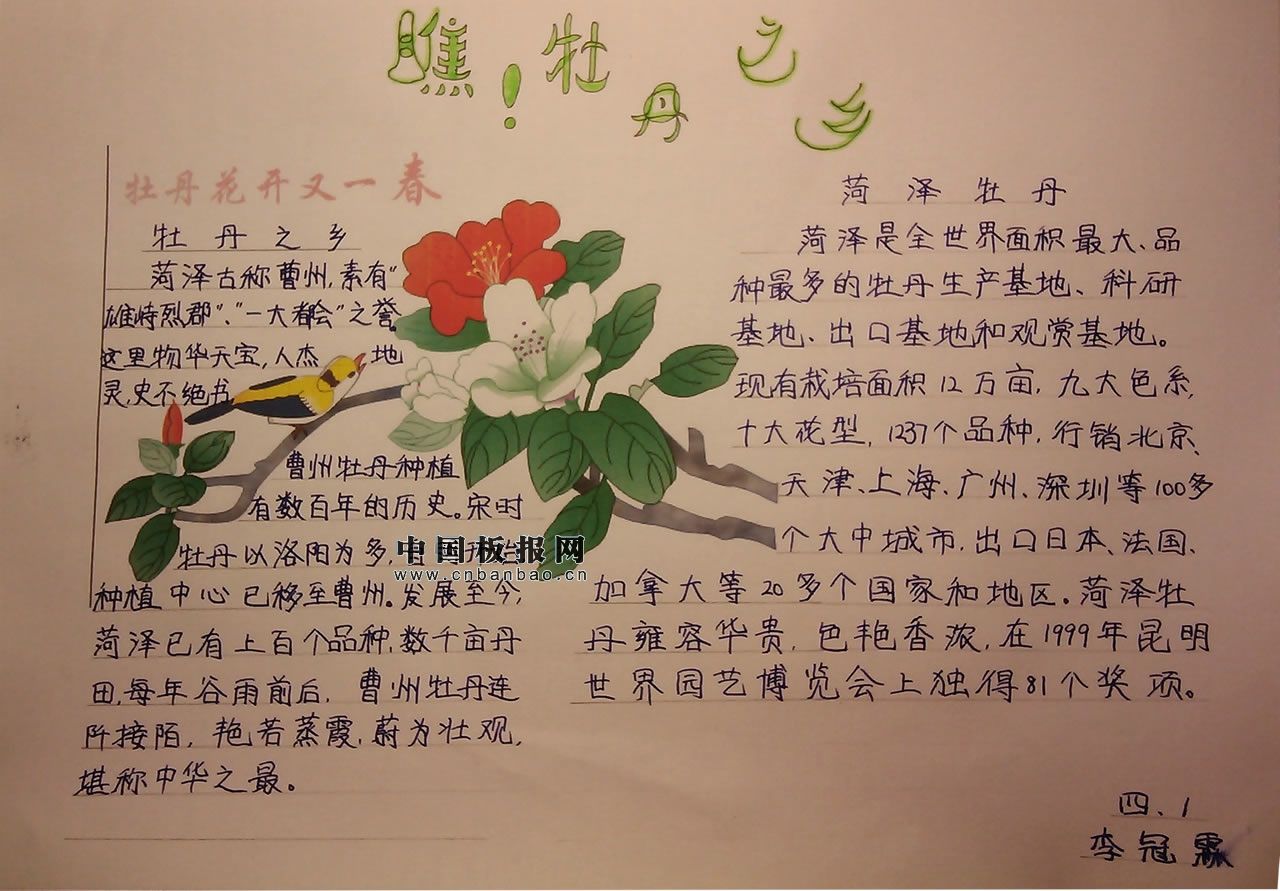 瞧!牡丹之乡
牡丹花开又一春
牡丹之乡
菏泽古称曹州,素有“
雄峙烈郡”、“一大都会”之誉。
这里物华天宝,人杰地
灵,史不绝书。
曹州牡丹种植
有数百年的历史。宋时
牡丹以洛阳为多,
种植中心已移至曹州。发展至今,
菏泽已有上百个品种,数千亩丹
田,每年谷雨前后,曹州牡丹连
阡接陌,艳若蒸霞,蔚为壮观,
堪称中华之最。
菏泽牡丹
菏泽是全世界面积最大、品
种最多的牡丹生产基地、科研
基地、出口基地和观赏基地。
现有栽培面积12万亩,九大色系,
十大花型,1237个品种,行销北京、
天津、上海、广州、深圳等100多
个大中城市,出口日本、法国、
加拿大等20多个国家和地区。菏泽牡
丹雍容华贵,色艳香浓,在1999年昆明
世界园艺博览会上独得81个奖项。
四、1
李冠霖
中国板报网
www.cnbanbao.cn